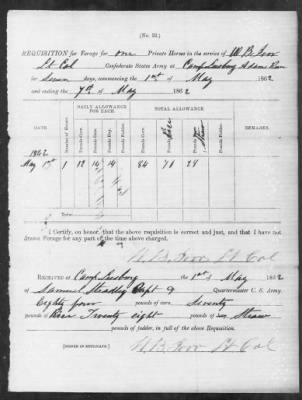 (No. 33.)
REQUISITION for Forage for one Private Horses in the service of W. B.
Lt Col Confederate States Army at Camp Adams Run
for Seven days, commencing the 1st of May 1862
and ending the 7th of May 1862
DATE
Number of Horses
DAILY ALLOWANCE FOR EACH.
TOTAL ALLOWANCE
REMARKS.
Pounds Corn.
Pounds Hay.
Pounds Fodder.
Pounds Corn.
Rice
Straw
Pounds Fodder.
1862
May 1 12 14 84 28
Total,
I Certify, on honor, that the above requisition is correct and just, and that I have not
drawn Forage for any part of the time above charged.
W. B. Lt Col
RECEIVED at Camp the 1st of May 1862
of Samuel Capt Q Quartermaster C. S. Army,
Eighty four pounds of corn, Seventy
pounds of Rice Twenty eight pounds of Straw
pounds of fodder, in full of the above Requisition.
[SIGNED IN DUPLICATE.]
W. B. Lt Col